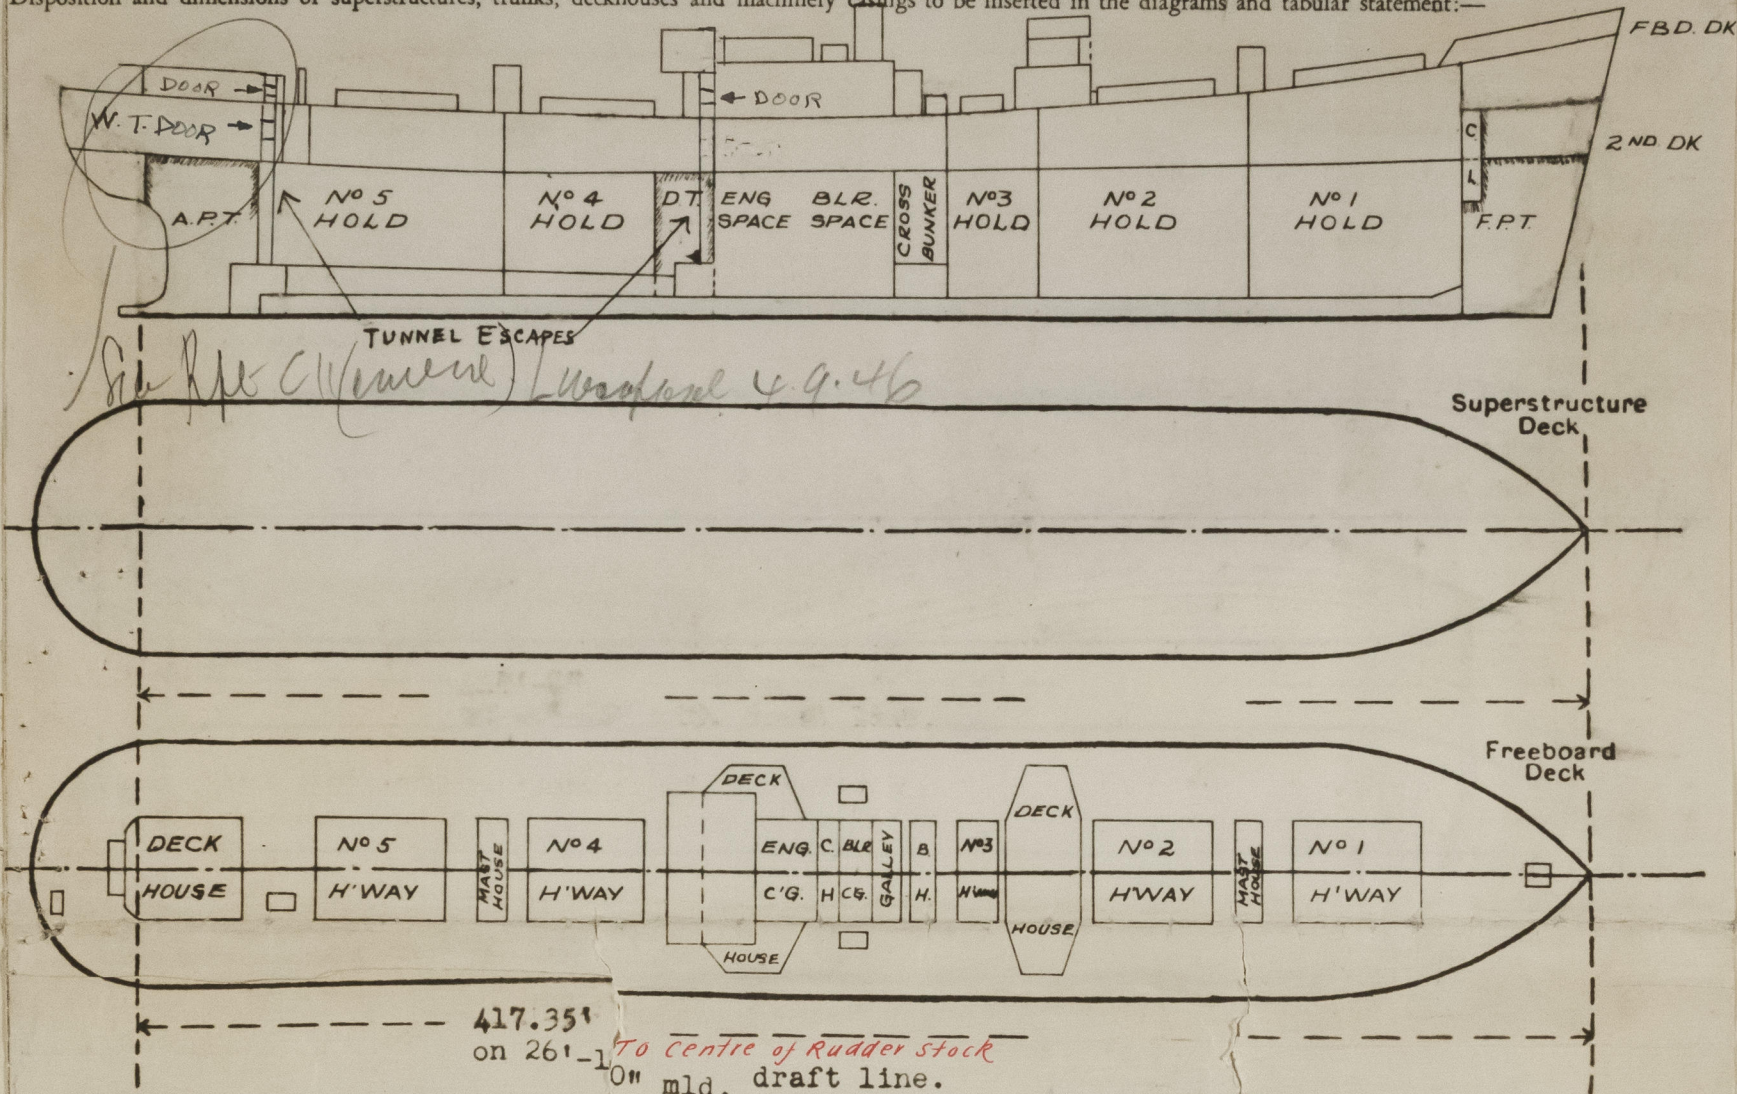 Disposition and dimensions of superstructures, trunks, deckhouses and machinery casings to be inserted in the diagrams and tabular statement:—
FBD. DK
DOOR
DOOR
W.T. DOOR
2ND DK
C
L
A.P.T.
No 5
HOLD
No 4
HOLD
D T
ENG
SPACE
BLR.
SPACE
CROSS
BUNKER
No3
HOLD
No 2
HOLD
No 1
HOLD
F.P.T.
TUNNEL ESCAPES
Rpt C11 Liverpool 4.9.46
Superstructure
Deck
Freeboard
Deck
DECK
HOUSE
No 5
H'WAY
MAST
HOUSE
No 4
H'WAY
DECK
HOUSE
ENG.
C'G.
C.
H
BLR
CG.
GALLEY
B.
H.
No3
DECK
HOUSE
No 2
H'WAY
MAST
HOUSE
No 1
H'WAY
417.35'
To Centre of Rudder Stock
on 26'-10" mld. draft line.